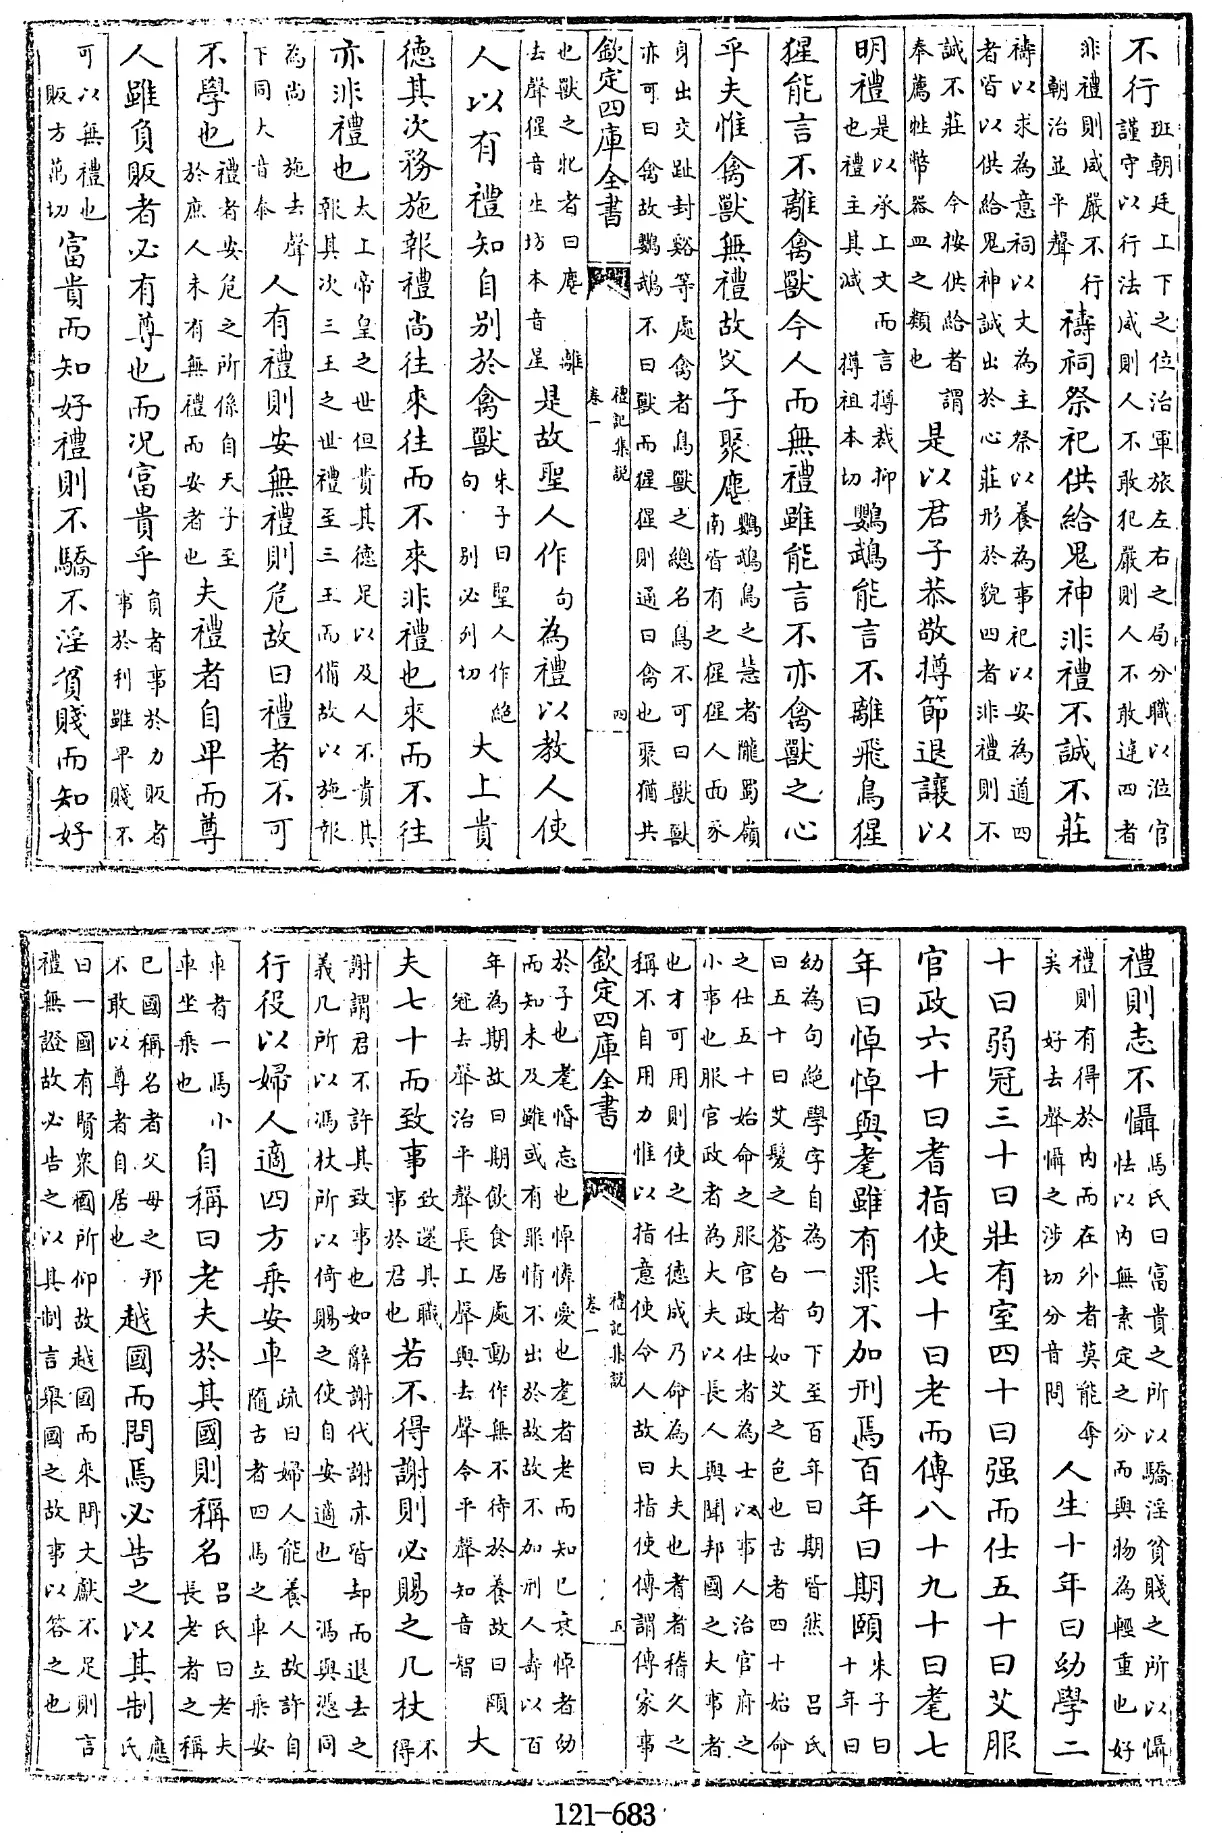 不行班朝廷上下之位治軍旅左右之局分職以涖官謹守以行法威則人不敢犯嚴則人不敢違四者
非禮則威嚴不行朝治並平聲禱祠祭祀供給鬼神非禮不誠不莊
禱以求為意祠以文為主祭以養為事祀以安為道四者皆以供給鬼神誠出於心莊形於貌四者非禮則不
誠不莊 今按供給者謂奉薦牲幣器皿之類也是以君子恭敬撙節退讓以
明禮是以承上文而言撙裁抑也禮主其減 撙祖本切鸚鵡能言不離飛鳥猩
猩能言不離禽獸今人而無禮雖能言不亦禽獸之心
乎夫惟禽獸無禮故父子聚麀鸚鵡鳥之慧者隴蜀嶺南皆有之猩猩人面豕
身出交趾封谿等處禽者鳥獸之總名鳥不可曰獸獸亦可曰禽故鸚鵡不曰獸而猩猩則通曰禽也聚猶共
欽定四庫全書 禮記集說 卷一 四
也獸之牝者曰麀 離去聲猩音生坊本音星是故聖人作句為禮以教人使
人以有禮知自別於禽獸朱子曰聖人作絶句·別必列切大上貴
德其次務施報禮尚往來往而不來非禮也來而不往
亦非禮也太上帝皇之世但貴其德足以及人不貴其報其次三王之世禮至三王而備故以施報
為尚 施去聲下同大音泰人有禮則安無禮則危故曰禮者不可
不學也禮者安危之所係自天子至於庶人未有無禮而安者也夫禮者自卑而尊
人雖負販者必有尊也而况富貴乎負者事於力販者事於利雖卑賤不
可以無禮也販方萬切富貴而知好禮則不驕不淫貧賤而知好
禮則志不懾馬氏曰富貴之所以驕淫貧賤之所以懾怯以内無素定之分而與物為輕重也好
禮則有得於内而在外者莫能奪矣 好去聲懾之涉切分音問人生十年曰幼學二
十曰弱冠三十曰壯有室四十曰强而仕五十曰艾服
官政六十曰耆指使七十曰老而傳八十九十曰耄七
年曰悼悼與耄雖有罪不加刑焉百年曰期頤朱子曰十年曰
幼為句絶學字自為一句下至百年曰期皆然 吕氏曰五十曰艾髮之蒼白者如艾之色也古者四十始命
之仕五十始命之服官政仕者為士以事人治官府之小事也服官政者為大夫以長人與聞邦國之大事者
也才可用則使之仕德成乃命為大夫也耆者稽久之稱不自用力惟以指意使令人故曰指使傳謂傳家事
欽定四庫全書 禮記集說 卷一 五
於子也耄惛忘也悼憐愛也耄者老而知已衰悼者幼而知未及雖或有罪情不出於故故不加刑人壽以百
年為期故曰期飲食居處動作無不待於養故曰頤冠去聲治平聲長上聲與去聲令平聲知音智大
夫七十而致事致還其職事於君也若不得謝則必賜之几杖不得
謝謂君不許其致事也如辭謝代謝亦皆却而退去之義几所以馮杖所以倚賜之使自安適也 馮與憑同
行役以婦人適四方乘安車疏曰婦人能養人故許自隨古者四馬之車立乘安
車者一馬小車坐乘也自稱曰老夫於其國則稱名吕氏曰老夫長老者之稱
已國稱名者父母之邦不敢以尊者自居也越國而問焉必告之以其制應氏
曰一國有賢衆國所仰故越國而來問大獻不足則言禮無證故必告之以其制言舉國之故事以答之也
121-683